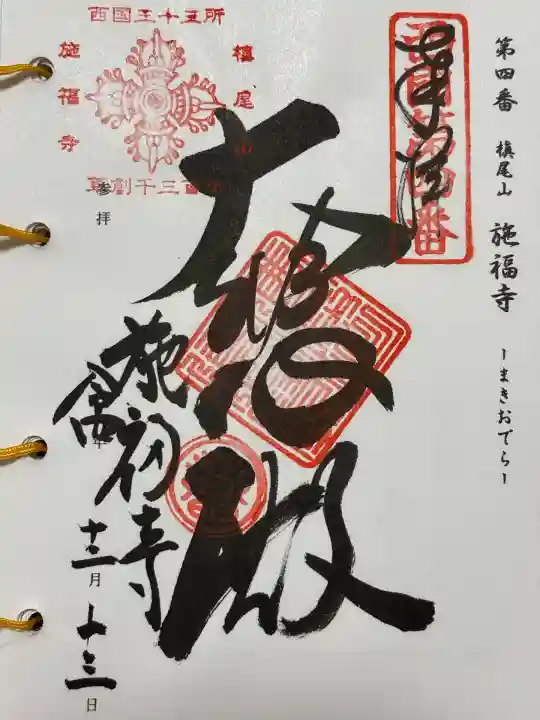 第四番 槇尾山 施福寺 ーまきおでらー
奉拝
西国第四番
大悲殿
西国三十三所
槇尾山
施福寺
草創千三百年
参拝
施福寺
年
十二月
十三日